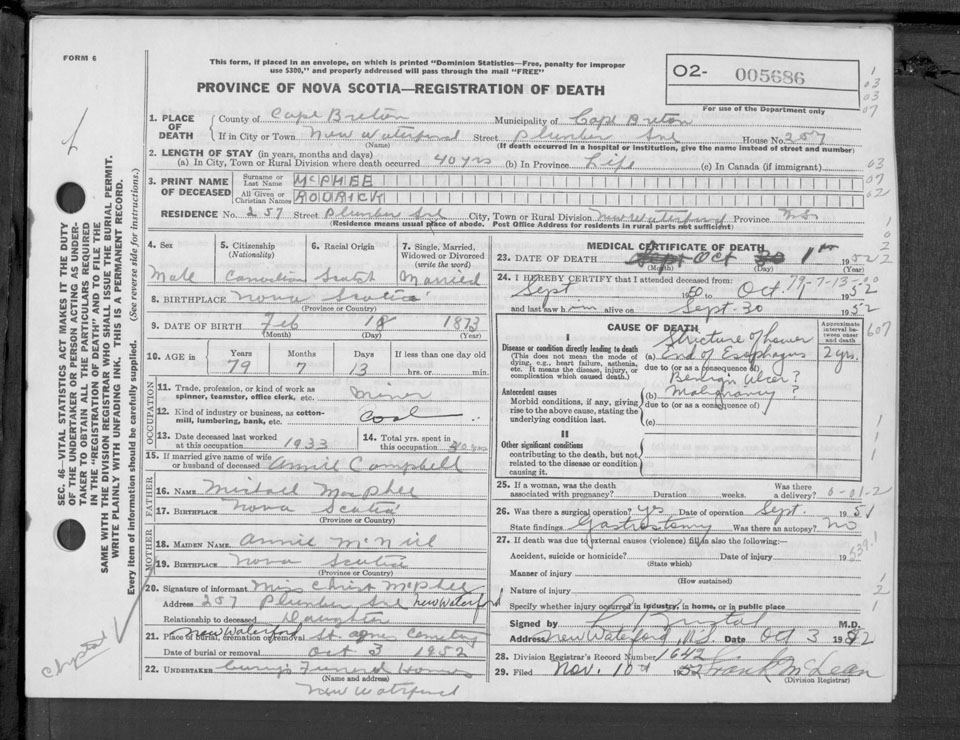 FORM 6
This form, if placed in an envelope, on which is printed "Dominion Statistics—Free, penalty for improper
use $300," and properly addressed will pass through the mail "FREE"
PROVINCE OF NOVA SCOTIA—REGISTRATION OF DEATH
O2- 005686
For use of the Department only
1. PLACE OF DEATH
County of Cape Breton Municipality of Cape Breton
If in City or Town New Waterford Street Plumber Ave House No. 257
(Name) (If death occurred in a hospital or institution, give the name instead of street and number)
2. LENGTH OF STAY (in years, months and days)
(a) In City, Town or Rural Division where death occurred 40 yrs (b) In Province Life (c) In Canada (if immigrant)
3. PRINT NAME OF DECEASED
Surname or Last Name McPHEE
All Given or Christian Names RODRICK
RESIDENCE No. 257 Street Plumber Ave City, Town or Rural Division New Waterford Province N.S.
(Residence means usual place of abode. Post Office Address for residents in rural parts not sufficient)
4. Sex
Male
5. Citizenship (Nationality)
Canadian
6. Racial Origin
Scotch
7. Single, Married, Widowed or Divorced (write the word)
Married
8. BIRTHPLACE Nova Scotia
(Province or Country)
9. DATE OF BIRTH Feb 18 1873
(Month) (Day) (Year)
10. AGE in Years 79 Months 7 Days 13 If less than one day old
hrs. or min.
OCCUPATION
11. Trade, profession, or kind of work as spinner, teamster, office clerk, etc. Miner
12. Kind of industry or business, as cotton-mill, lumbering, bank, etc. Coal
13. Date deceased last worked at this occupation 1933
14. Total yrs. spent in this occupation
15. If married give name of wife or husband of deceased Annie Campbell
FATHER
16. NAME Michael MacPhee
17. BIRTHPLACE Nova Scotia
(Province or Country)
MOTHER
18. MAIDEN NAME Annie McNeil
19. BIRTHPLACE Nova Scotia
(Province or Country)
20. Signature of informant Miss Christ McPhee
Address 257 Plumber Ave New Waterford
Relationship to deceased Daughter
21. Place of burial, cremation or removal New Waterford St. Agnes Cemetery
Date of burial or removal Oct 3 1952
22. UNDERTAKER Curry's Funeral Home
(Name and address)
New Waterford
MEDICAL CERTIFICATE OF DEATH
23. DATE OF DEATH Sept Oct 30 1st 1952
(Month) (Day) (Year)
24. I HEREBY CERTIFY that I attended deceased from:
Sept 1950 to Oct. 1952
79-7-13
and last saw him alive on Sept-30 1952
CAUSE OF DEATH
Approximate interval between onset and death
I
Disease or condition directly leading to death
(This does not mean the mode of dying, e.g., heart failure, asthenia, etc. It means the disease, injury, or complication which caused death.)
(a) Structure of lower End of Esophagus 2 yrs.
due to (or as a consequence of)
Antecedent causes
Morbid conditions, if any, giving rise to the above cause, stating the underlying condition last.
(b) Benign Ulcer? Malignancy?
due to (or as a consequence of)
(c)
II
Other significant conditions
contributing to the death, but not related to the disease or condition causing it.
25. If a woman, was the death associated with pregnancy? Duration weeks. Was there a delivery?
26. Was there surgical operation? yes Date of operation Sept. 1951
State findings Gastrostomy Was there an autopsy? No
27. If death was due to external causes (violence) fill in also the following:—
Accident, suicide or homicide? Date of injury 19
(State which)
Manner of injury
(How sustained)
Nature of injury
Specify whether injury occurred in industry, in home, or in public place
Signed by Bristol M.D.
Address New Waterford N.S. Date Oct 3 1952
28. Division Registrar's Record Number 1642
29. Filed Nov. 10th 1952 Frank McLean
(Division Registrar)
SEC. 46—VITAL STATISTICS ACT MAKES IT THE DUTY
OF THE UNDERTAKER OR PERSON ACTING AS UNDER-
TAKER TO OBTAIN ALL THE PARTICULARS REQUIRED
IN THE "REGISTRATION OF DEATH" AND TO FILE THE
SAME WITH THE DIVISION REGISTRAR WHO SHALL ISSUE THE BURIAL PERMIT.
WRITE PLAINLY WITH UNFADING INK. THIS IS A PERMANENT RECORD.
Every item of information should be carefully supplied. (See reverse side for instructions.)
1
03
03
07
63
07
02
607
539.1